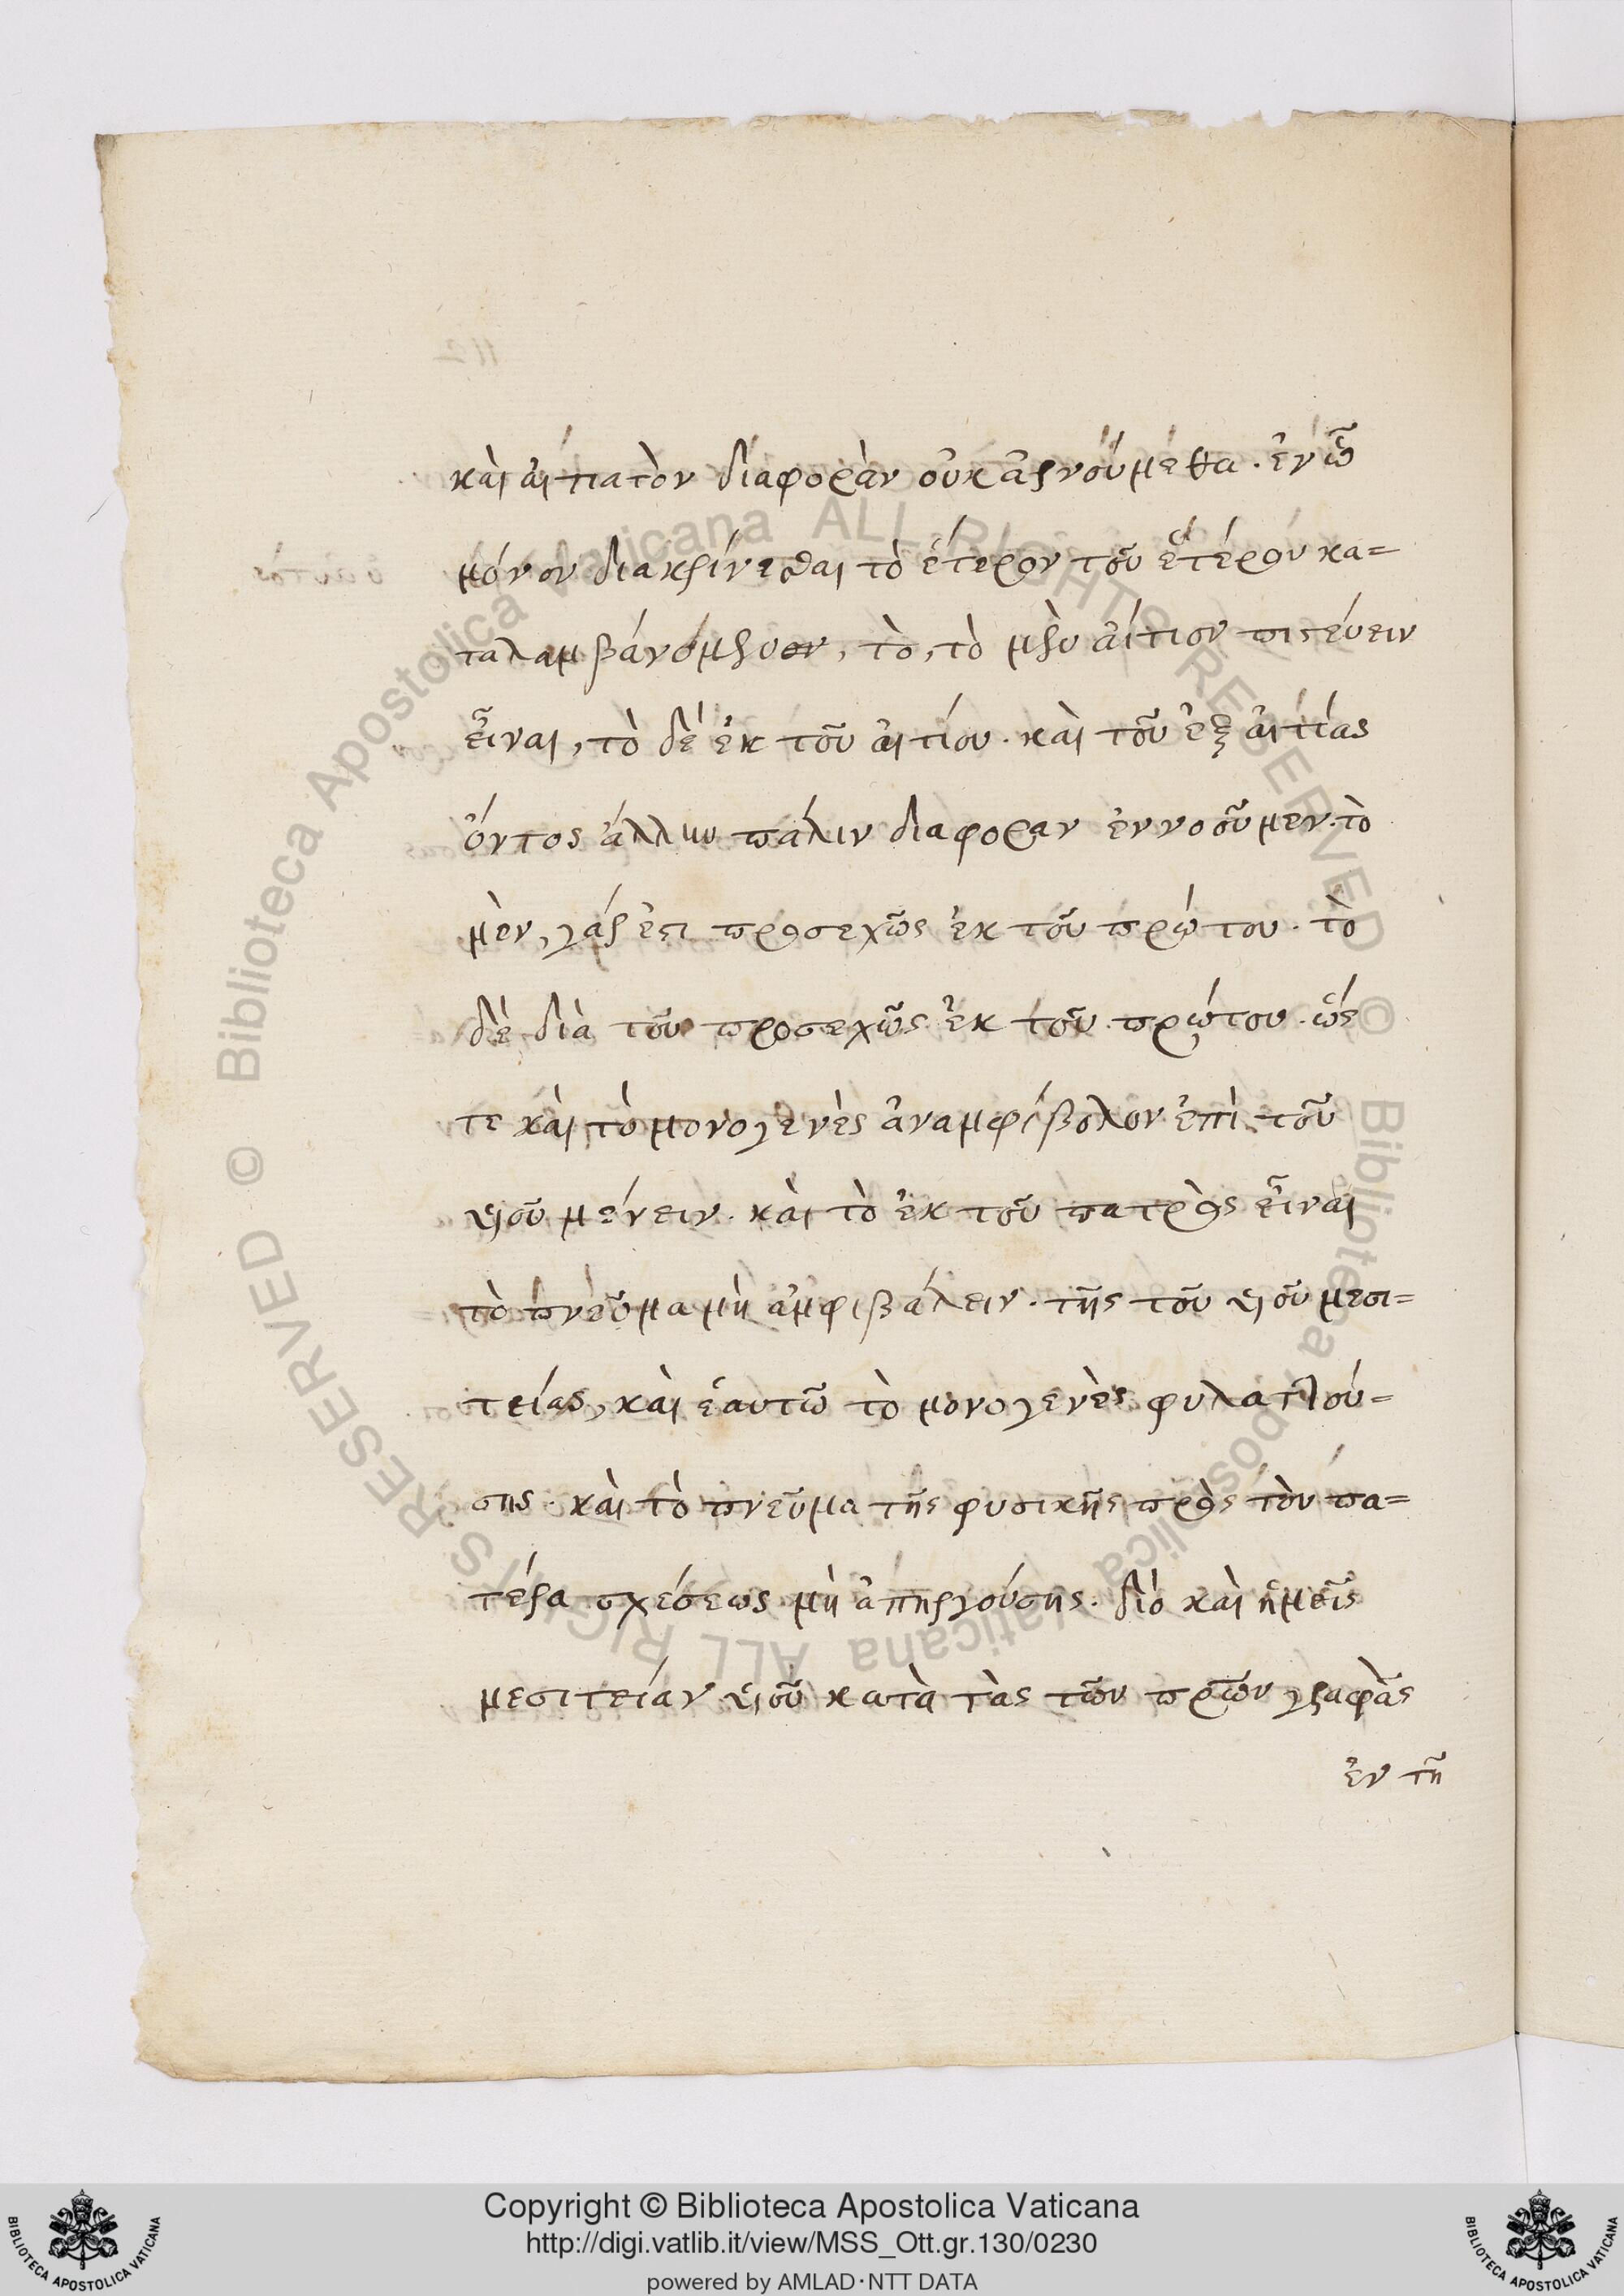 καὶ αἰτιατὸν διαφορὰν οὐκ ἀρνούμεθα. ἐν ᾧ
μόνον διακρίνεσθαι τὸ ἕτερον τοῦ ἑτέρου κα=
ταλαμβάνομεν, τὸ, τὸ μὲν αἴτιον πιστεύειν
εἶναι, τὸ δὲ ἐκ τοῦ αἰτίου. καὶ τοῦ ἐξ αἰτίας
ὄντος ἄλλην πάλιν διαφοραν ἐννοοῦμεν. τὸ
μὲν, γάρ ἐστι προσεχῶς ἐκ τοῦ πρώτου. τὸ
δὲ διὰ τοῦ προσεχῶς ἐκ τοῦ πρώτου. ὥς
τε καὶ τὸ μονογενὲς ἀναμφίβολον ἐπὶ τοῦ
υἱοῦ μένειν. καὶ τὸ ἐκ τοῦ πατρὸς εἶναι
τὸ πνεῦμα μὴ ἀμφιβάλειν. τῆς τοῦ υἱοῦ μεσι=
τείας, καὶ ἑαυτῶ τὸ μονογενὲς φυλαττού=
σης. καὶ τὸ πνεῦμα τῆς φυσικῆς πρὸς τὸν πα=
τέρα σχέσεως μὴ ἀπηργούσης. διό καὶ ἡμεῖς
μεσιτείαν υἱοῦ κατὰ τὰς τῶν πρῶν γραφὰς
ἐν τῆ
Copyright © Biblioteca Apostolica Vaticana
http://digi.vatlib.it/view/MSS_Ott.gr.130/0230
powered by AMLAD·NTT DATA
BIBLIOTECA APOSTOLICA VATICANA
BIBLIOTECA APOSTOLICA VATICANA
© Biblioteca Apostolica Vaticana ALL RIGHTS RESERVED © Biblioteca Apostolica Vaticana ALL RIGHTS RESERVED